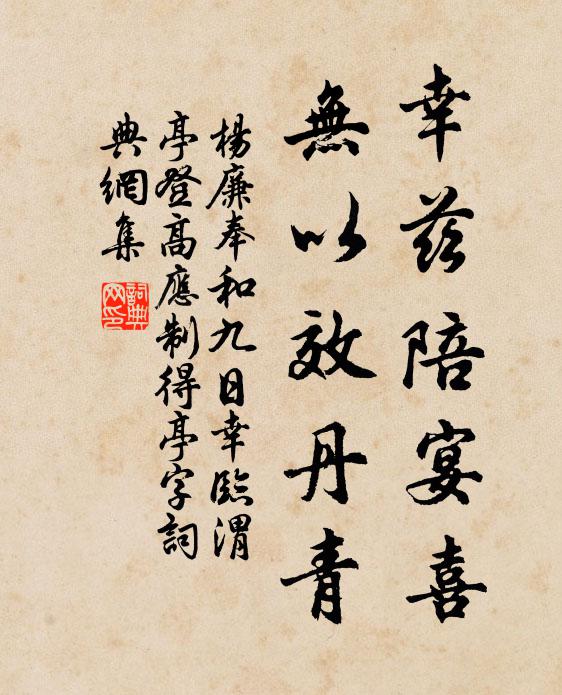 幸茲陪宴喜
無以效丹青
楊廉奉和九日幸臨渭
亭登高應制得亭字詞
典網集
詞典網印